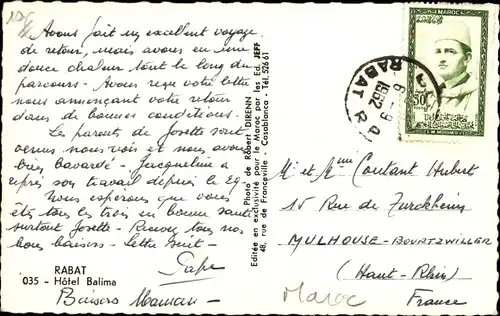 Avons fait un excellent voyage
de retour, mais avons eu une
douce chaleur tout le long du
parcours - Avons reçu votre lettre
nous annonçant votre retour
dans de bonnes conditions.
Les parents de Josette sont
venus nous voir et nous avons
bien bavardé - Jacqueline a
repris son travail depuis le
Nous espérons que vous
êtes tous les trois en bonne santé
surtout Josette - Recevez tous nos
bons baisers - Lettre suit -
Papa
RABAT
035 - Hôtel Balima
Baisers Maman -
Photo de Robert DIRENN
Editée en exclusivité pour le Maroc par les Ed. JEFF
48, rue de Franceville - Casablanca - Tél. 52661
MAROC
30
RABAT R.P.
6-9
1962
Mr et Mme Coutant Hubert
15 Rue de Turckheim
MULHOUSE-BOURTZWILLER
(Haut-Rhin)
France
Maroc